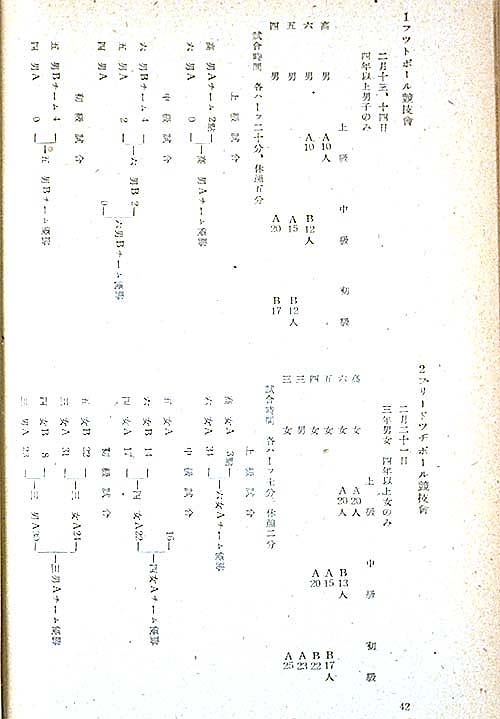 1 フツトボール競技會
二月十三、十四日
四年以上男子のみ
上級 中級 初級
高 男 A10人
六 男 A10 B12人
五 男 A15 B12人
四 男 A20 B17
試合時間 各ハーフ二十分、休憩五分
上級試合
高 男Aチーム 2點
六 男A 0
高 男Aチーム優勝
中級試合
六 男Bチーム 4
五 男A 2
六 男B 2
四 男A 0
六男Bチーム優勝
初級試合
五 男Bチーム 4
四 男A 0
五 男Bチーム優勝
2 フリードツヂボール競技會
二月二十一日
三年男女 四年以上女のみ
上級 中級 初級
高 女 A20人
六 女 A20人 B13人
五 女 A15 B17人
四 女 A20 B22
三 男 A23
三 女 A25
試合時間 各ハーフ十分、休憩二分
上級試合
高 女A 3點
六 女A 34
六女Aチーム優勝
中級試合
五 女A 16
六 女B 14
四 女A 17
四 女A22
四女Aチーム優勝
初級試合
五 女B 22
三 女A 31
三 女A24
四 女B 8
三 男A 23
三 男A30
三男Aチーム優勝
42